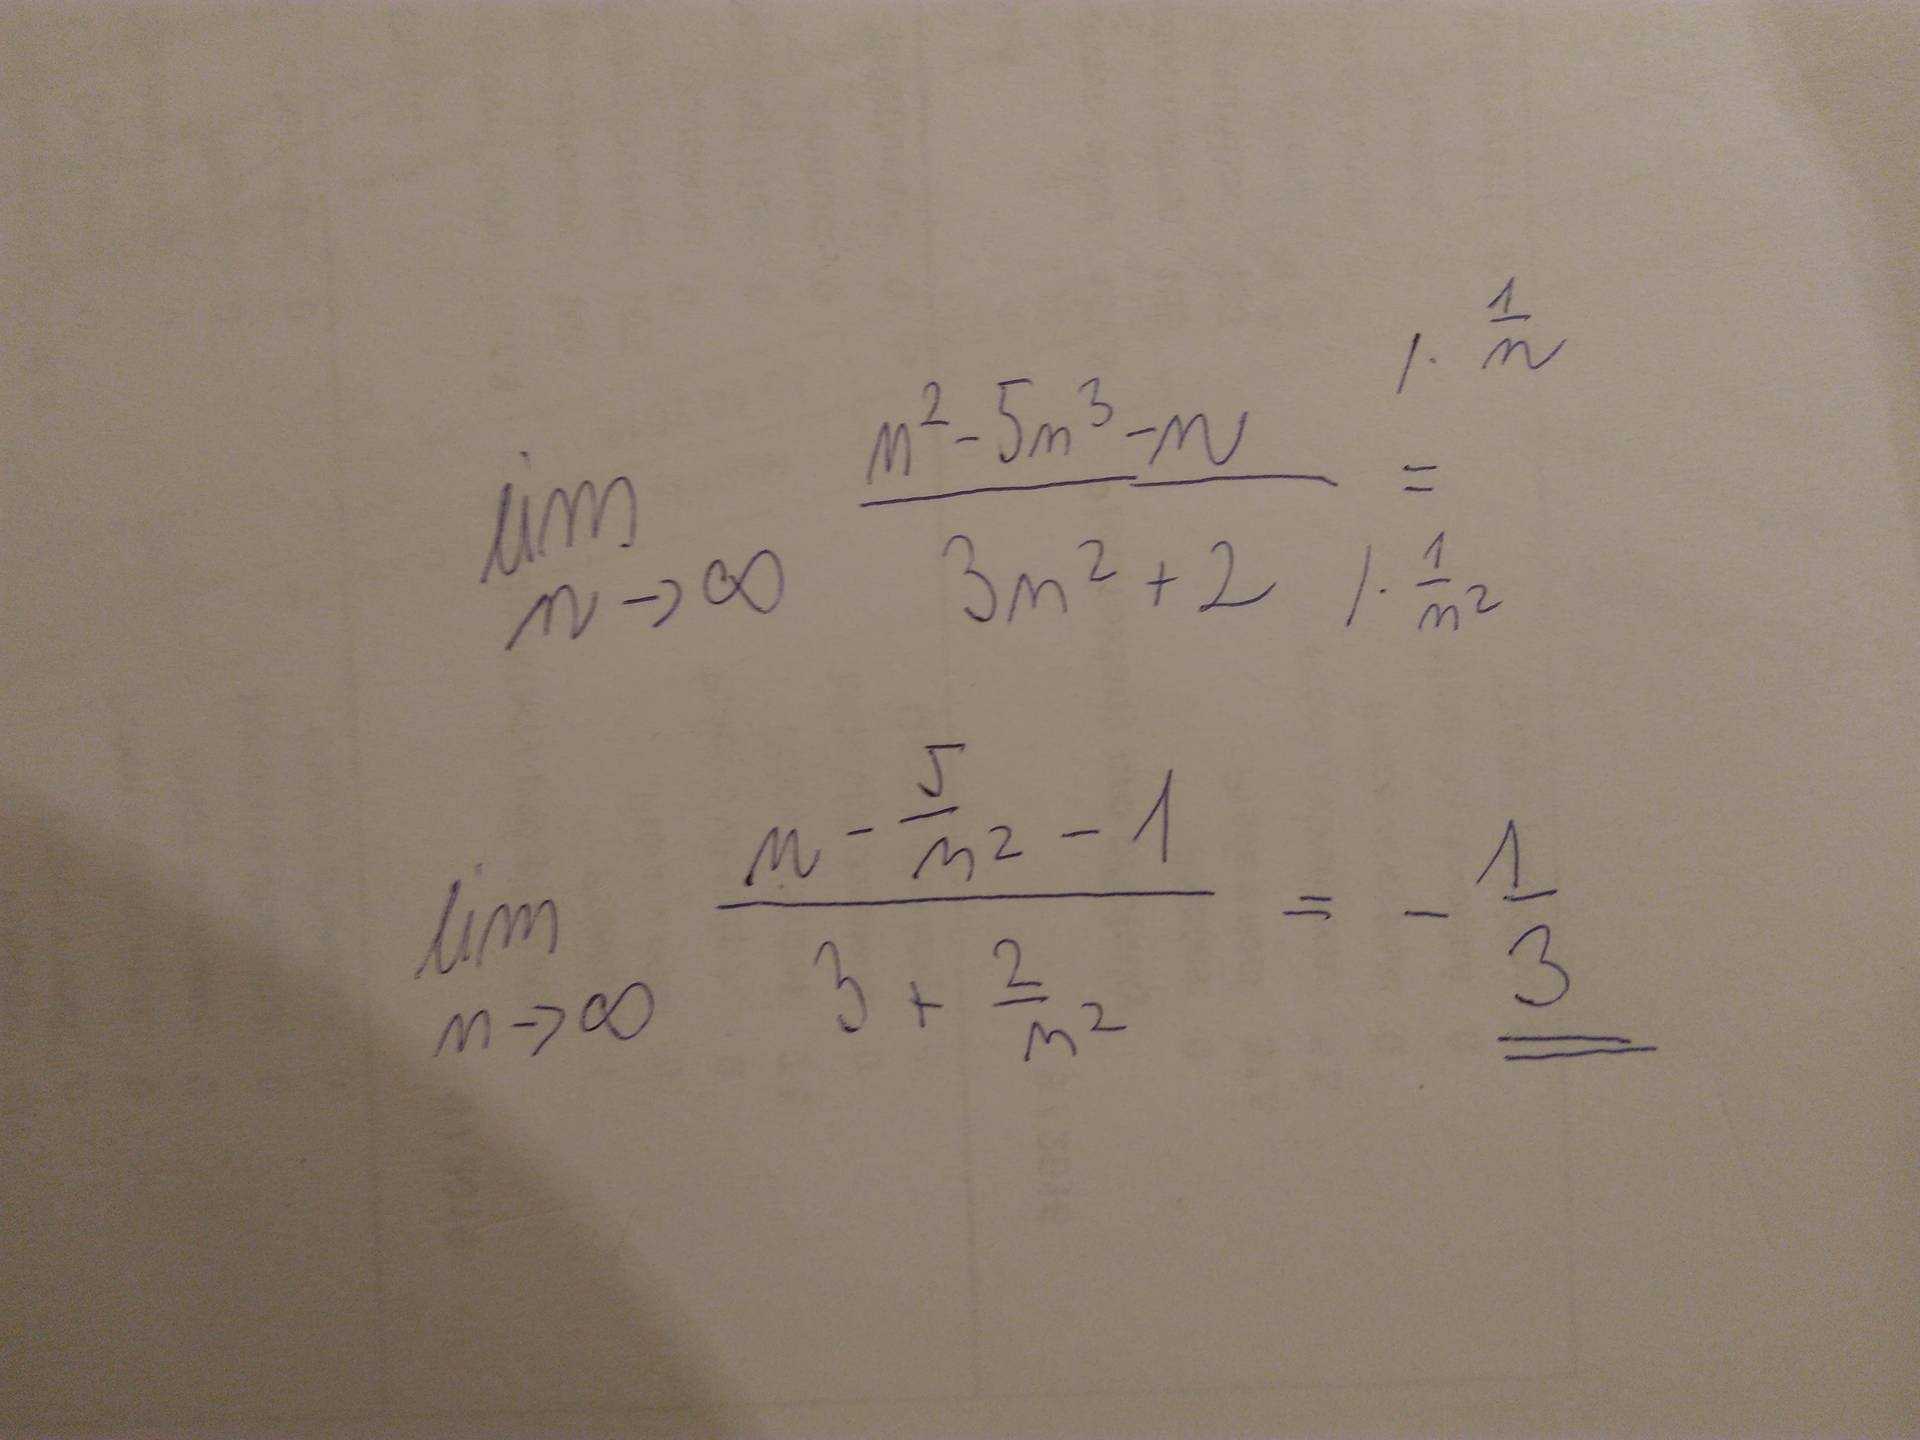 lim n→∞ (n² - 5n³ - n) / (3n² + 2) = /· 1/n /· 1/n²
lim n→∞ (n - 5/n² - 1) / (3 + 2/n²) = - 1/3